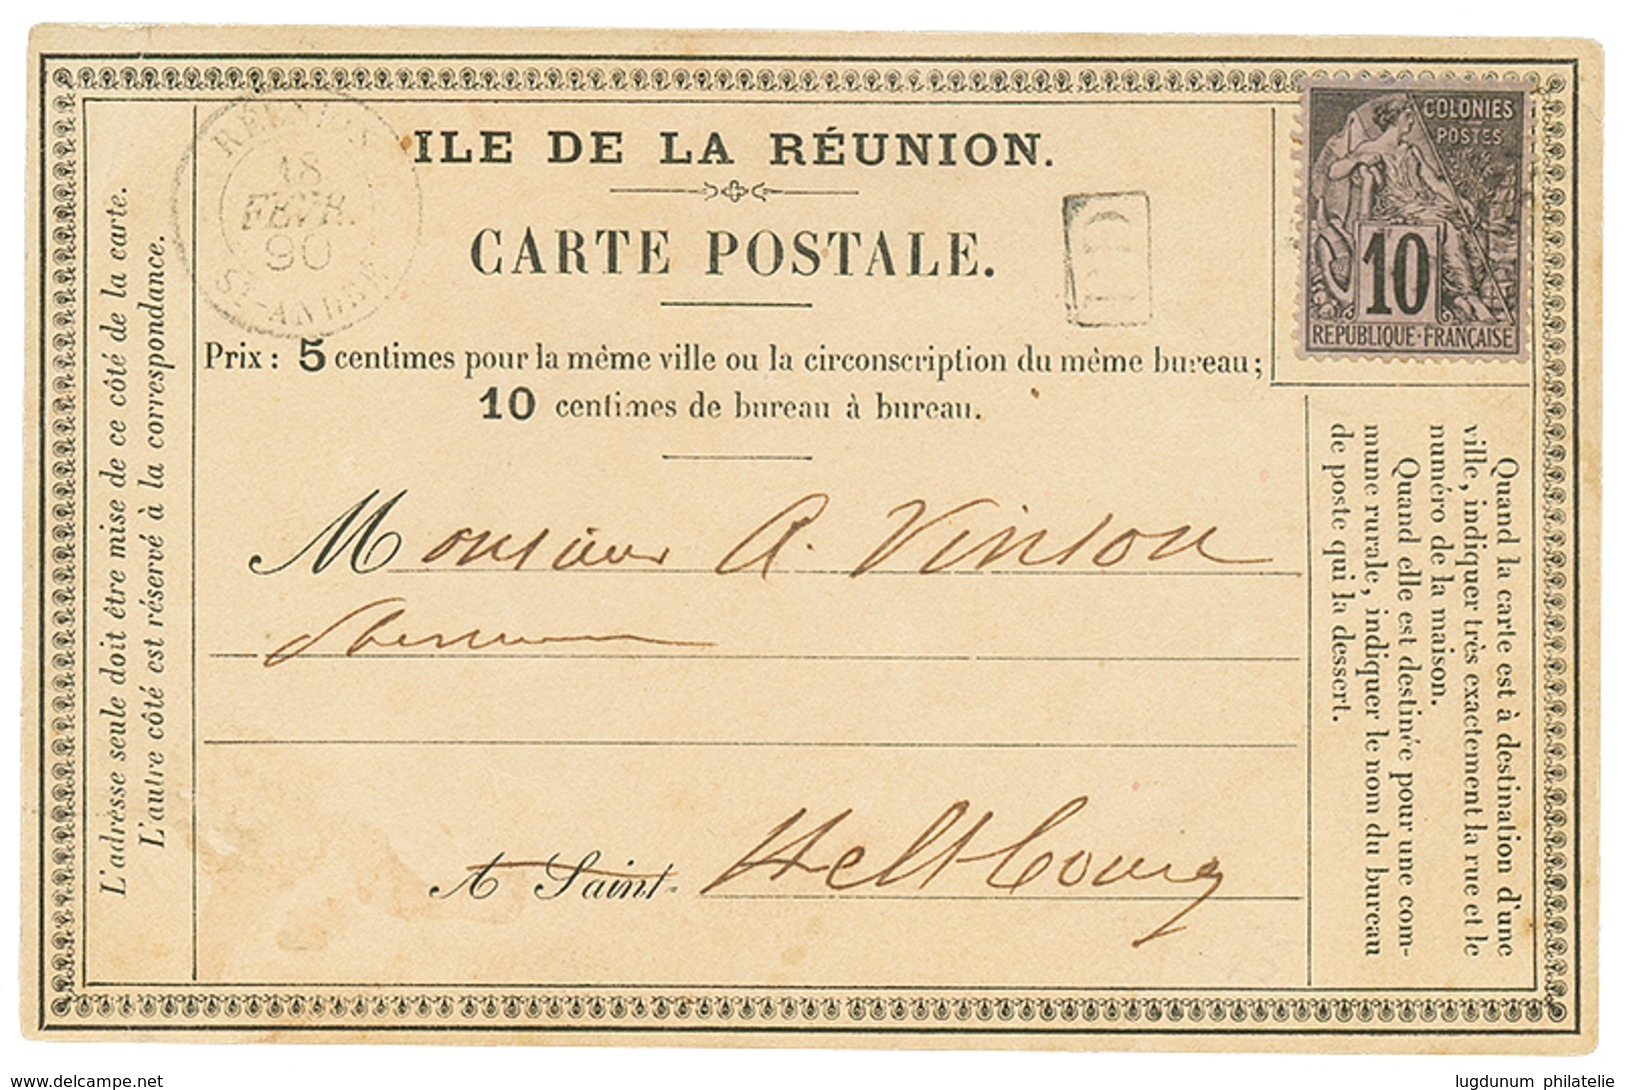 RÉUNION
18
FÉVR.
90
ST-ANDRÉ
ILE DE LA RÉUNION.
CARTE POSTALE.
PD
COLONIES
POSTES
10
REPUBLIQUE-FRANÇAISE
Prix : 5 centimes pour la même ville ou la circonscription du même bureau;
10 centimes de bureau à bureau.
Monsieur A. Vinson
A Saint- Hellbourg
L'adresse seule doit être mise de ce côté de la carte.
L'autre côté est réservé à la correspondance.
Quand la carte est à destination d'une
ville, indiquer très exactement la rue et le
numéro de la maison.
Quand elle est destinée pour une com-
mune rurale, indiquer le nom du bureau
de poste qui la dessert.
delcampe.net
lugdunum philatelie